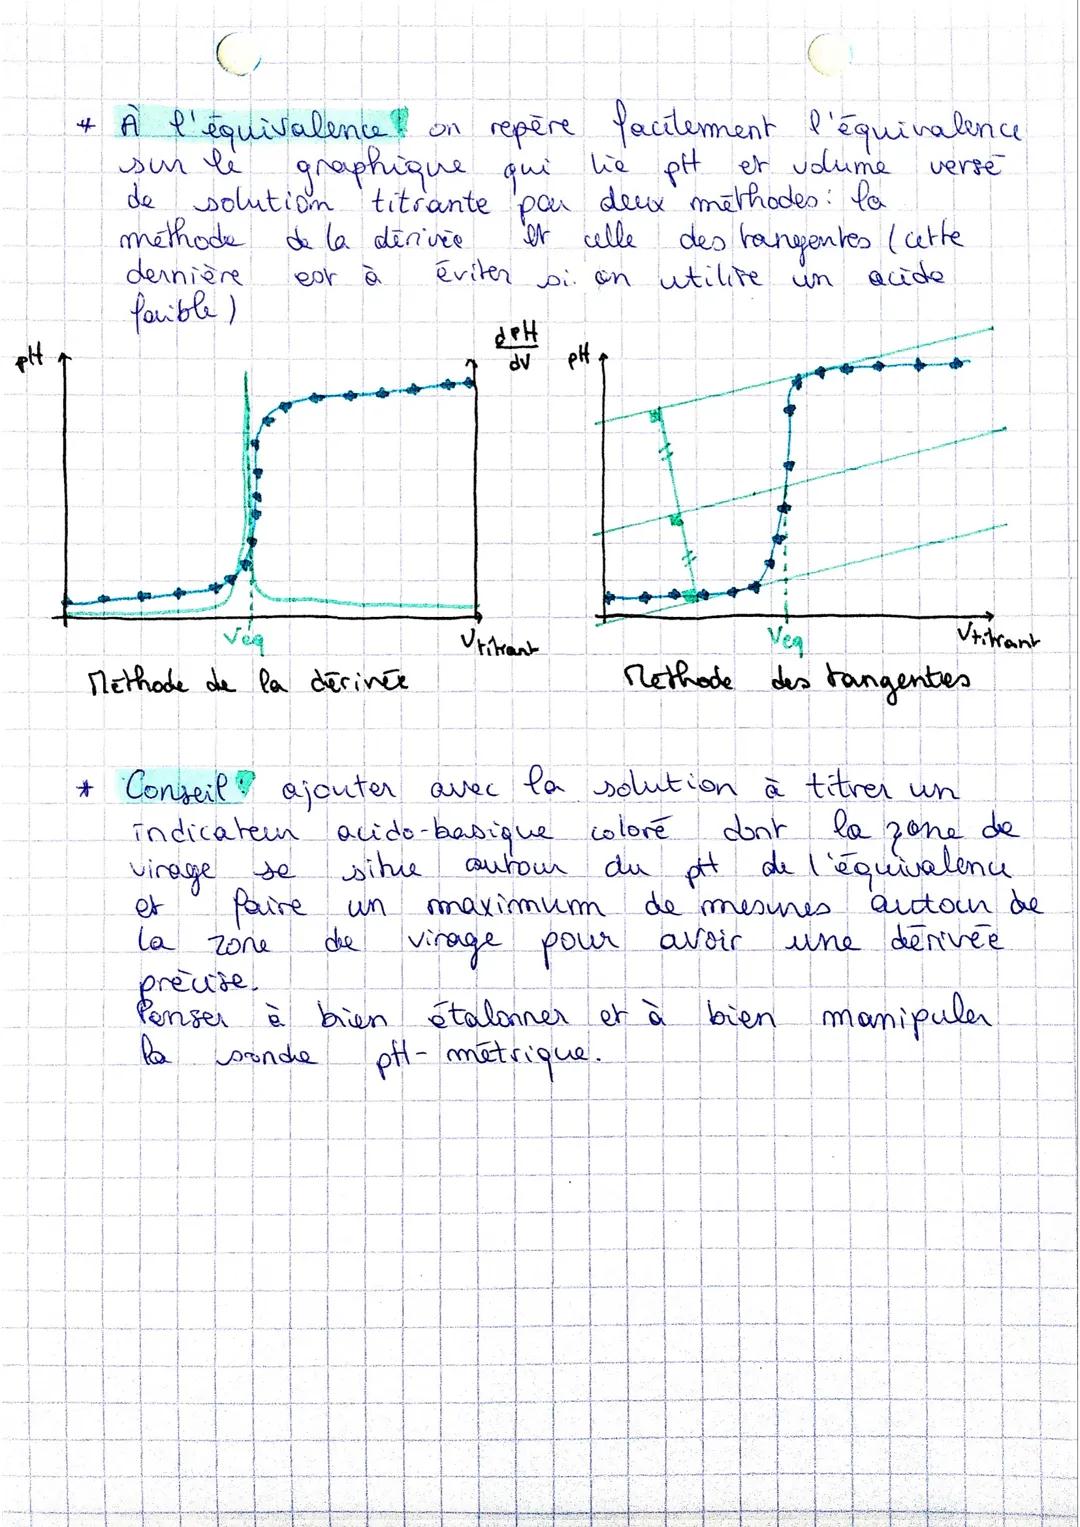 * À l'équivalence : on repère facilement l'équivalence
sur le graphique qui lie pH et volume versé
de solution titrante par deux méthodes : la
méthode de la dérivée et celle des tangentes (cette
dernière est à éviter si on utilise un acide
faible)
pH
dpH
dV
Véq
Vtitrant
Méthode de la dérivée
pH
Veq
Vtitrant
Méthode des tangentes
* Conseil : ajouter avec la solution à titrer un
indicateur acido-basique coloré dont la zone de
virage se situe autour du pH de l'équivalence
et faire un maximum de mesures autour de
la zone de virage pour avoir une dérivée
précise.
Penser à bien étalonner et à bien manipuler
la sonde pH-métrique.